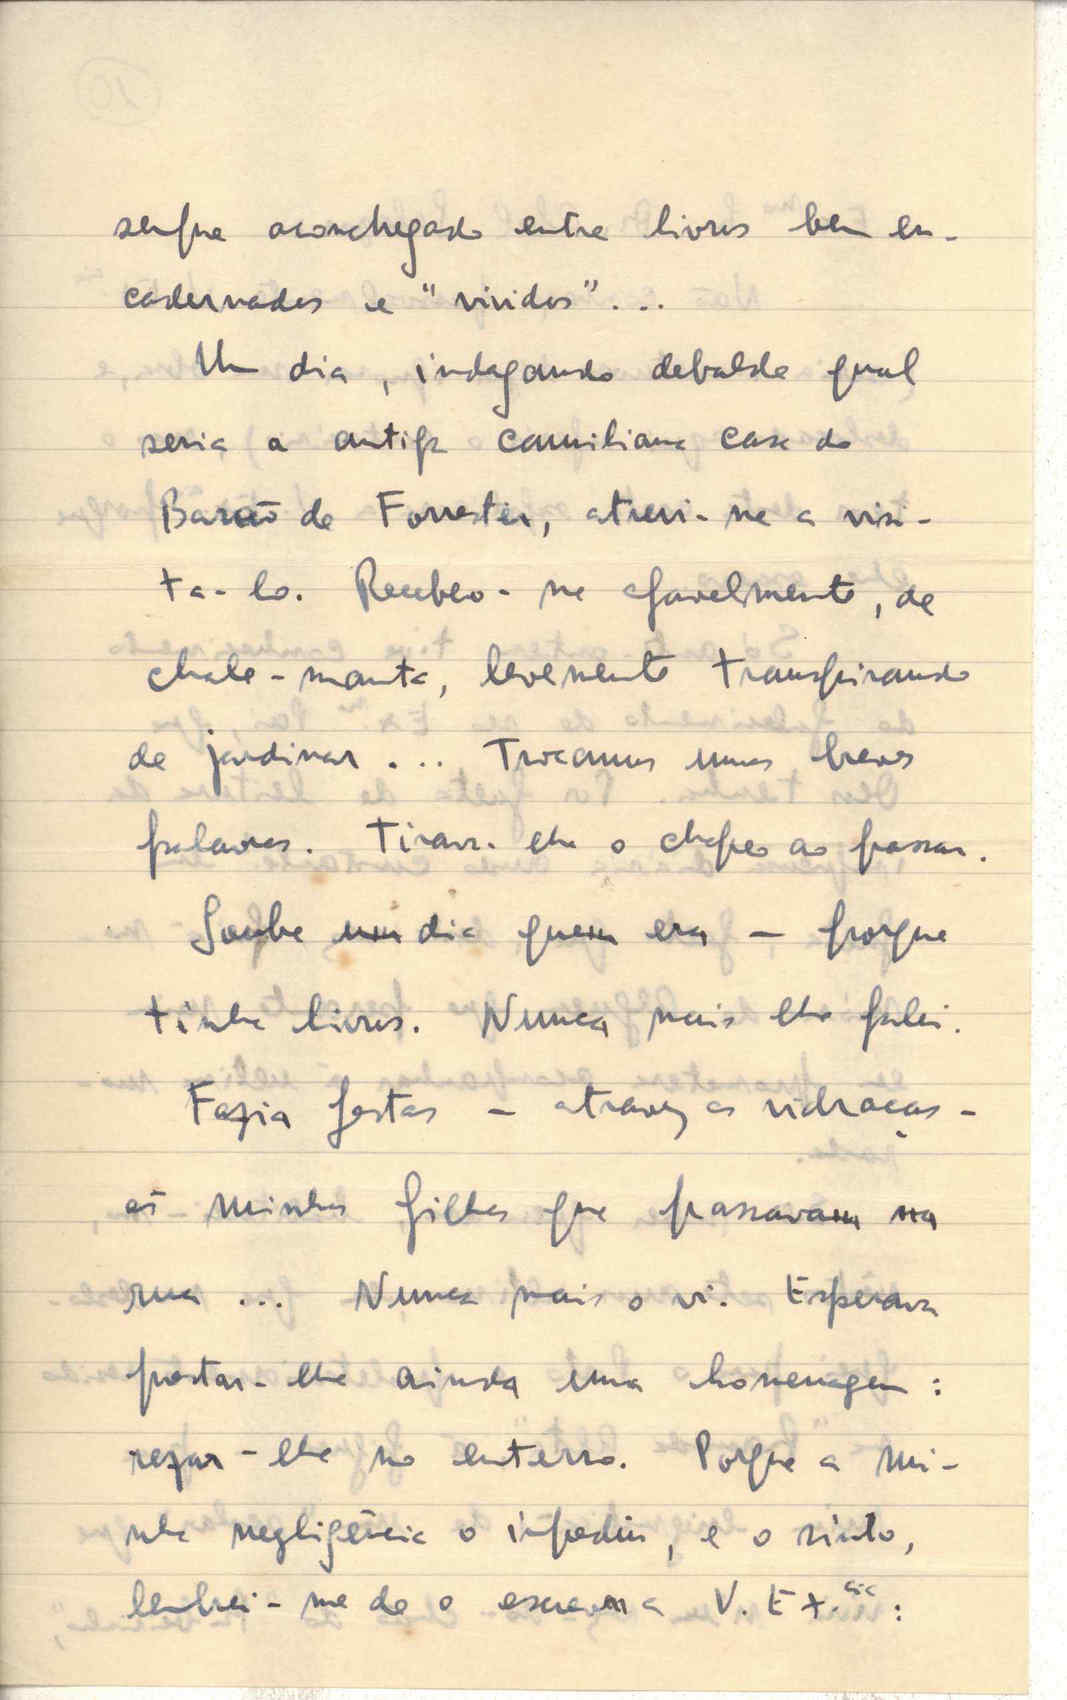 sempre aconchegado entre livros bem en-
cadernados e "vividos"...
Um dia, indagando debalde qual
seria a antiga camiliana casa do
Barão de Forrester, atrevi-me a visi-
ta-lo. Recebeo-me afavelmente, de
chale-manta, levemente transpirando
de jardinar... Trocamos umas breves
palavras. Tirava-lhe o chapeo ao passar.
Soube um dia quem era — porque
tinha livros. Nunca mais lhe falei.
Fazia festas — atravez as vidraças -
ás minhas filhas que passavam na
rua ... Nunca mais o vi. Esperava
prestar-lhe ainda uma homenagem:
rezar-lhe no enterro. Porque a mi-
nha negligência o impediu, e o sinto,
lembrei-me de o escrever a V. Ex.cia: